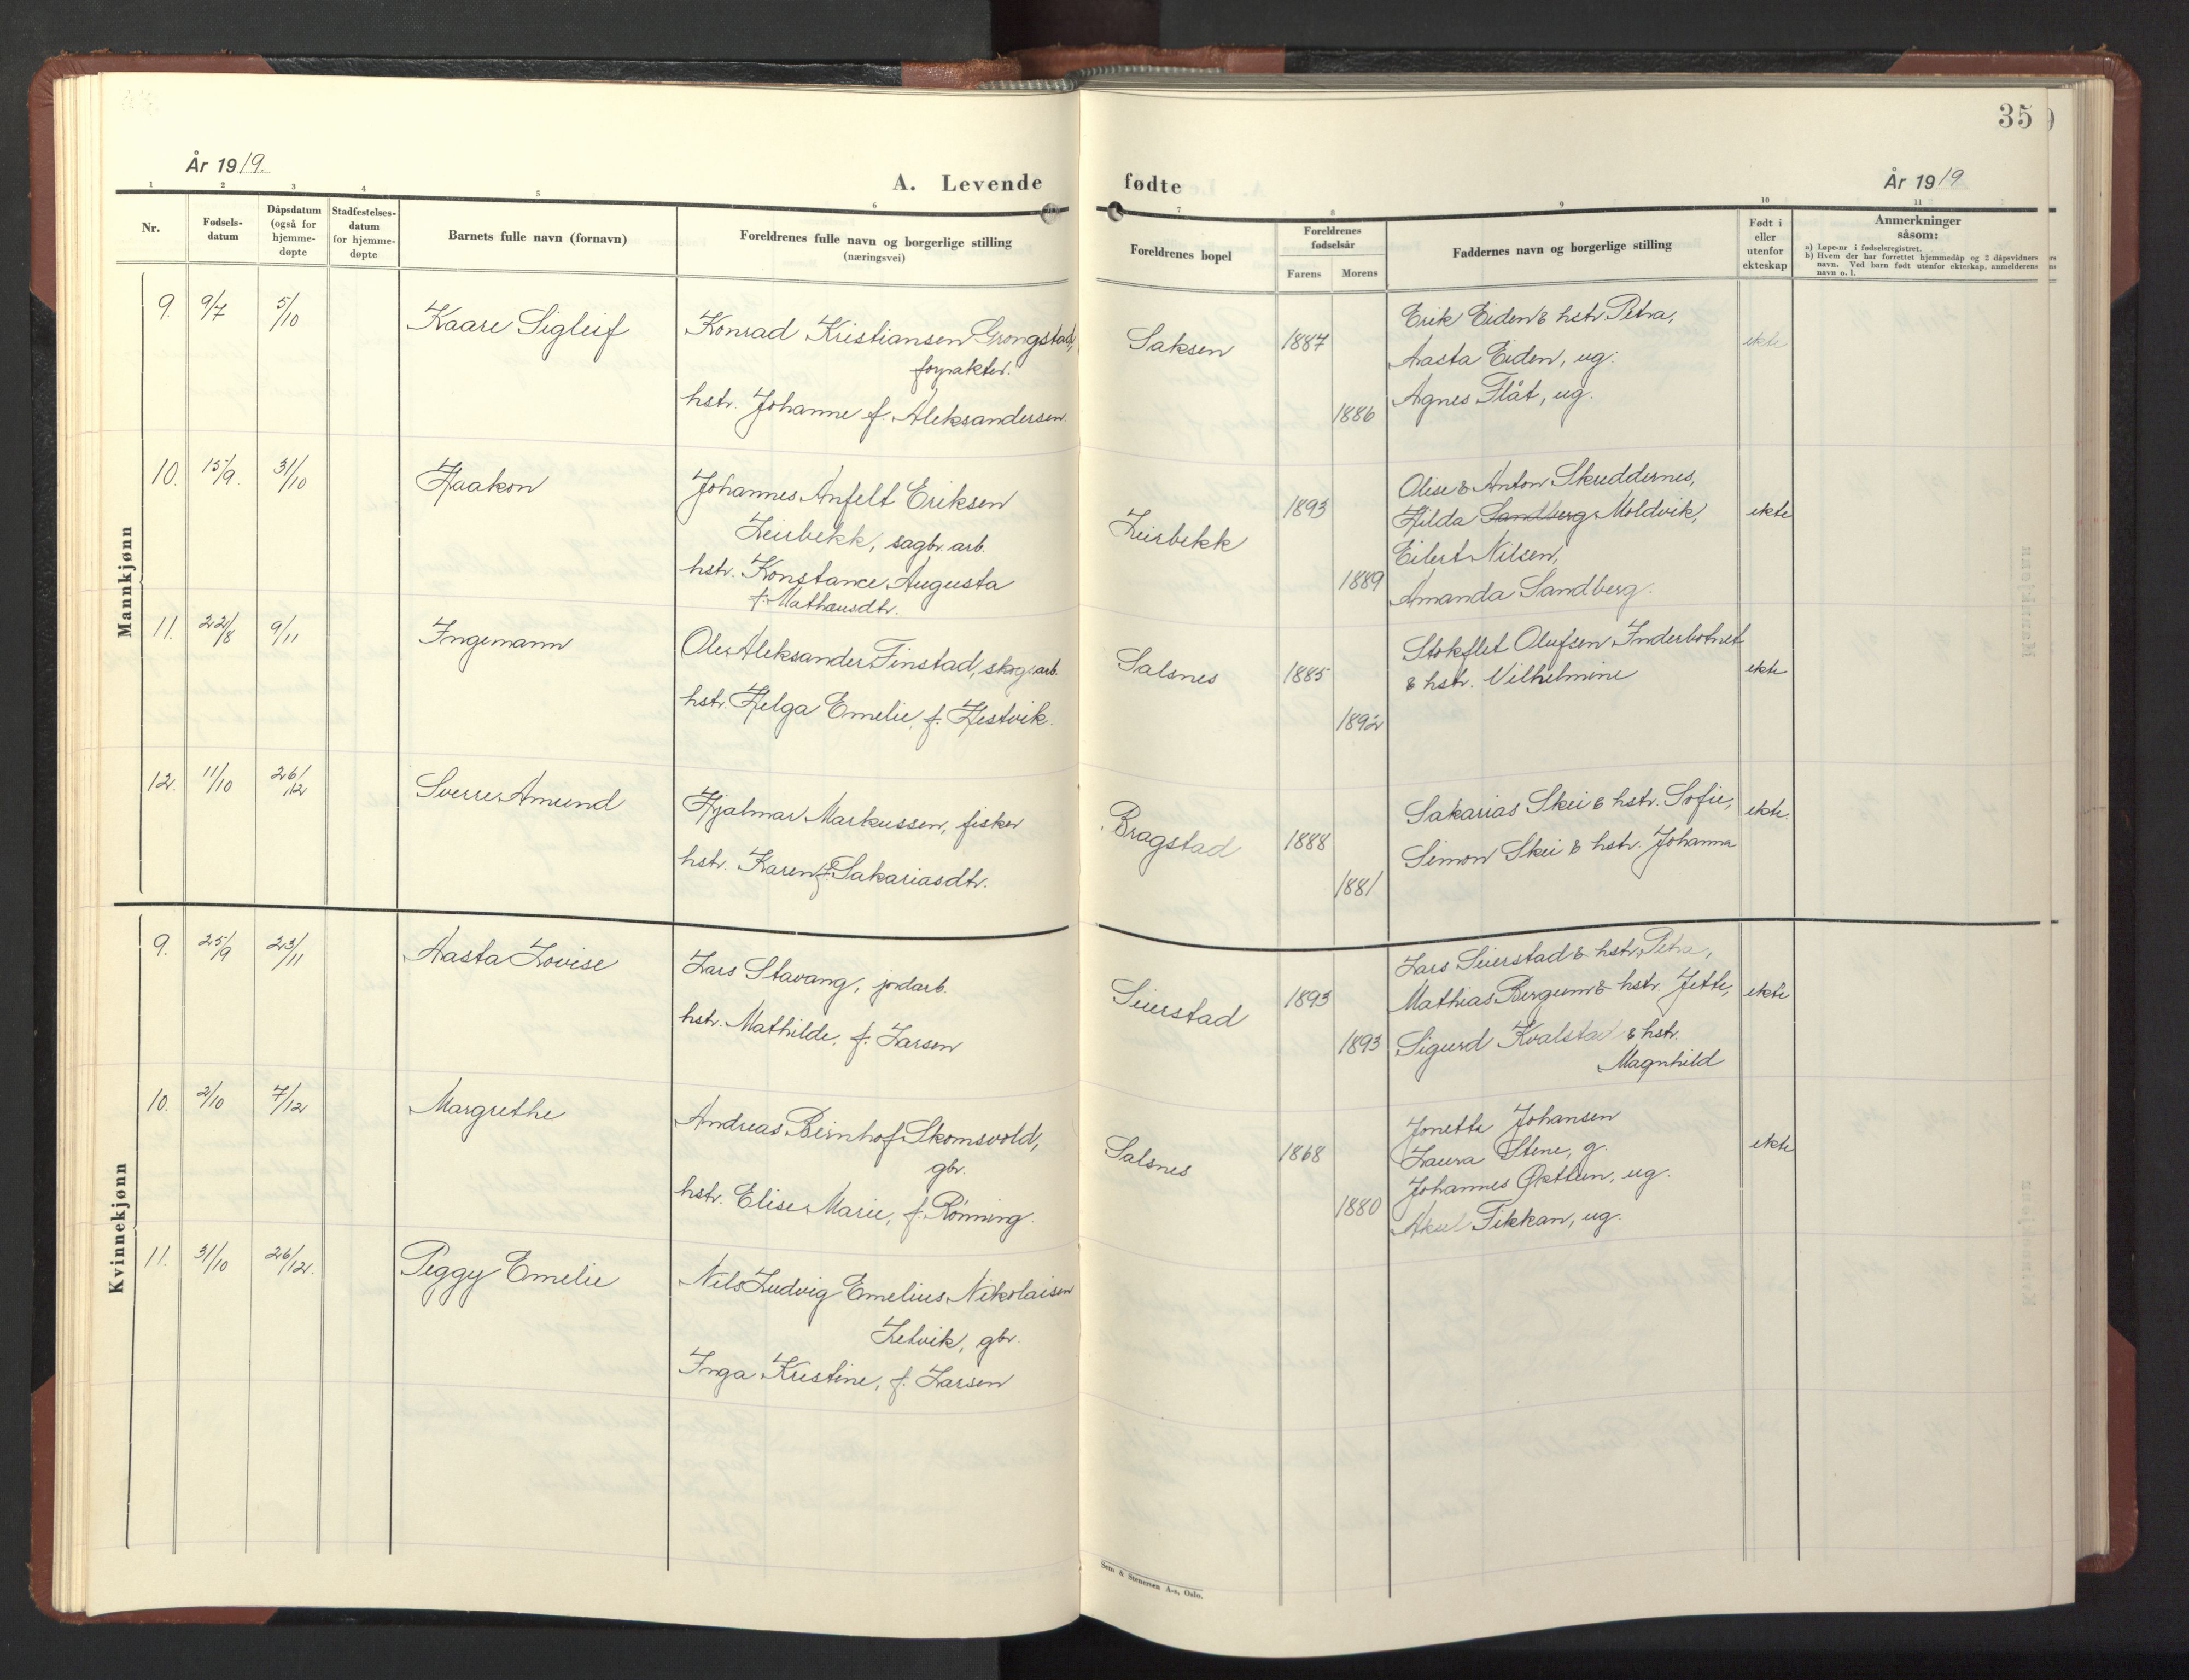 35
År 1919.
A. Levende
1 2 3 4 5 6
Nr.
Fødsels-
datum
Dåpsdatum
(også for
hjemme-
døpte
Stadfestelses-
datum
for hjemme-
døpte
Barnets fulle navn (fornavn)
Foreldrenes fulle navn og borgerlige stilling
(næringsvei)
Mannkjønn
9. 9/7 5/10 Kaare Sigleif
Konrad Kristiansen Grongstad,
hstr. Johanne f. Aleksandersen.
10. 15/9. 31/10 Haakon
Johannes Anfelt Eriksen
Leirbekk, sagbr. arb.
hstr. Konstance Augusta
f. Mathausdtr.
11. 22/8 9/11 Ingemann
Ole Aleksander Finstad, skogsarb.
hstr. Helga Emelie, f. Hestvik.
12. 11/10 26/12 Sverre Amund
Hjalmar Markussen, fisker
hstr. Karen f. Sakariasdtr.
Kvinnekjønn
9. 25/9 23/11 Aasta Lovise
Lars Stavang, jordarb.
hstr. Mathilde, f. Larsen
10. 2/10 7/12 Margrethe
Andreas Bernhof Skomsvold,
gbr.
hstr. Elise Marie, f. Rønning.
11. 31/10 26/12. Peggy Emelie
Nils Ludvig Emelius Nikolaisen
Letvik, gbr.
Inga Kristine, f. Larsen
fødte
År 1919
7 8 9 10 11
Foreldrenes bopel
Foreldrenes
fødselsår
Farens Morens
Faddernes navn og borgerlige stilling
Født i
eller
utenfor
ekteskap
Anmerkninger
såsom:
a) Løpe-nr i fødselsregistret.
b) Hvem der har forrettet hjemmedåp og 2 dåpsvidners
navn. Ved barn født utenfor ekteskap, anmelderens
navn o. l.
Saksen 1887 1886
Erik Eiden & hstr Petra, ekte
Aasta Eiden, ug.
Agnes Flåt, ug.
Leirbekk 1893 1889
Olise & Anton Skuddernes,
Hilda Sandberg Moldvik, ekte
Eilert Nilsen,
Amanda Sandberg.
Salsnes 1885 1892
Stokflet Olufsen Inderbotnet
& hstr. Vilhelmine ekte
Bragstad 1888 1881
Sakarias Skei & hstr. Sofie, ekte.
Simon Skei & hstr. Johanna
Seierstad 1893 1893
Lars Seierstad & hstr. Petra,
Mathias Bergum & hstr. Jette, ekte
Sigurd Kvalstad & hstr.
Magnhild
Salsnes 1868 1880
Jonetta Johansen
Laura Stene, g. ekte
Johannes Øktbun, ug.
Fikkan, ug.
Sem & Stenersen A-s, Oslo.